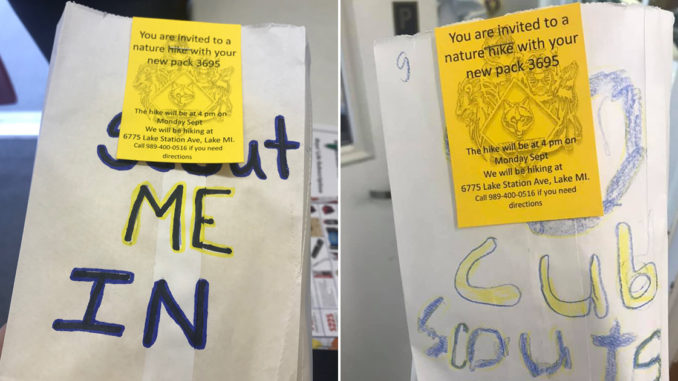 You are invited to a
nature hike with your
new pack 3695
The hike will be at 4 pm on
Monday Sept
We will be hiking at
6775 Lake Station Ave, Lake MI.
Call 989-400-0516 if you need
directions
Scout
ME
IN
You are invited to a
nature hike with your
new pack 3695
The hike will be at 4 pm on
Monday Sept
We will be hiking at
6775 Lake Station Ave, Lake MI.
Call 989-400-0516 if you need
directions
Cub
Scouts
P